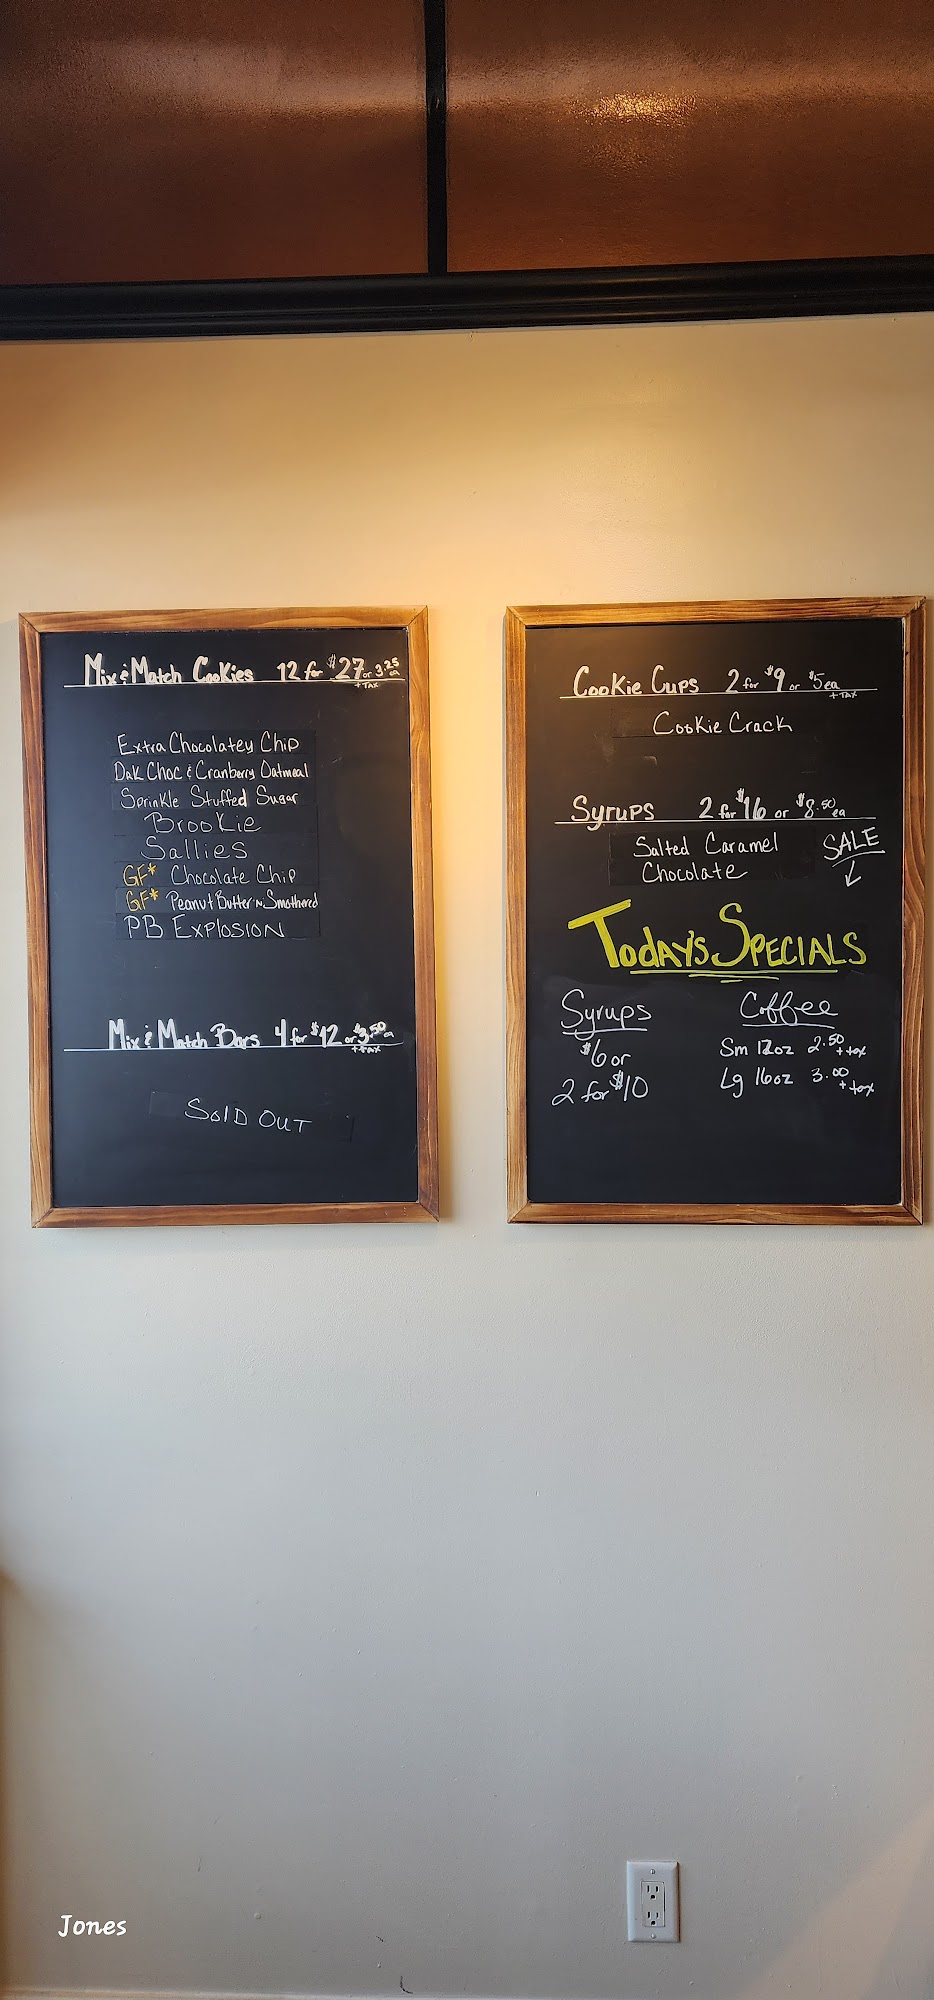 Mix & Match Cookies 12 for $27 or 3.25 ea
+ TAX
Extra Chocolatey Chip
Dak Choc & Cranberry Oatmeal
Sprinkle Stuffed Sugar
Brookie
Sallies
GF* Chocolate Chip
GF* Peanut Butter N Smothered
PB Explosion
Mix & Match Bars 4 for $12 or $3.50 ea
+ tax
Sold Out
Cookie Cups 2 for $9 or $5 ea
+ TAX
Cookie Crack
Syrups 2 for $16 or $8.50 ea
Salted Caramel
Chocolate
SALE
Today's Specials
Syrups
$6 or
2 for $10
Coffee
Sm 12oz 2.50 + tax
Lg 16oz 3.00 + tax
Jones